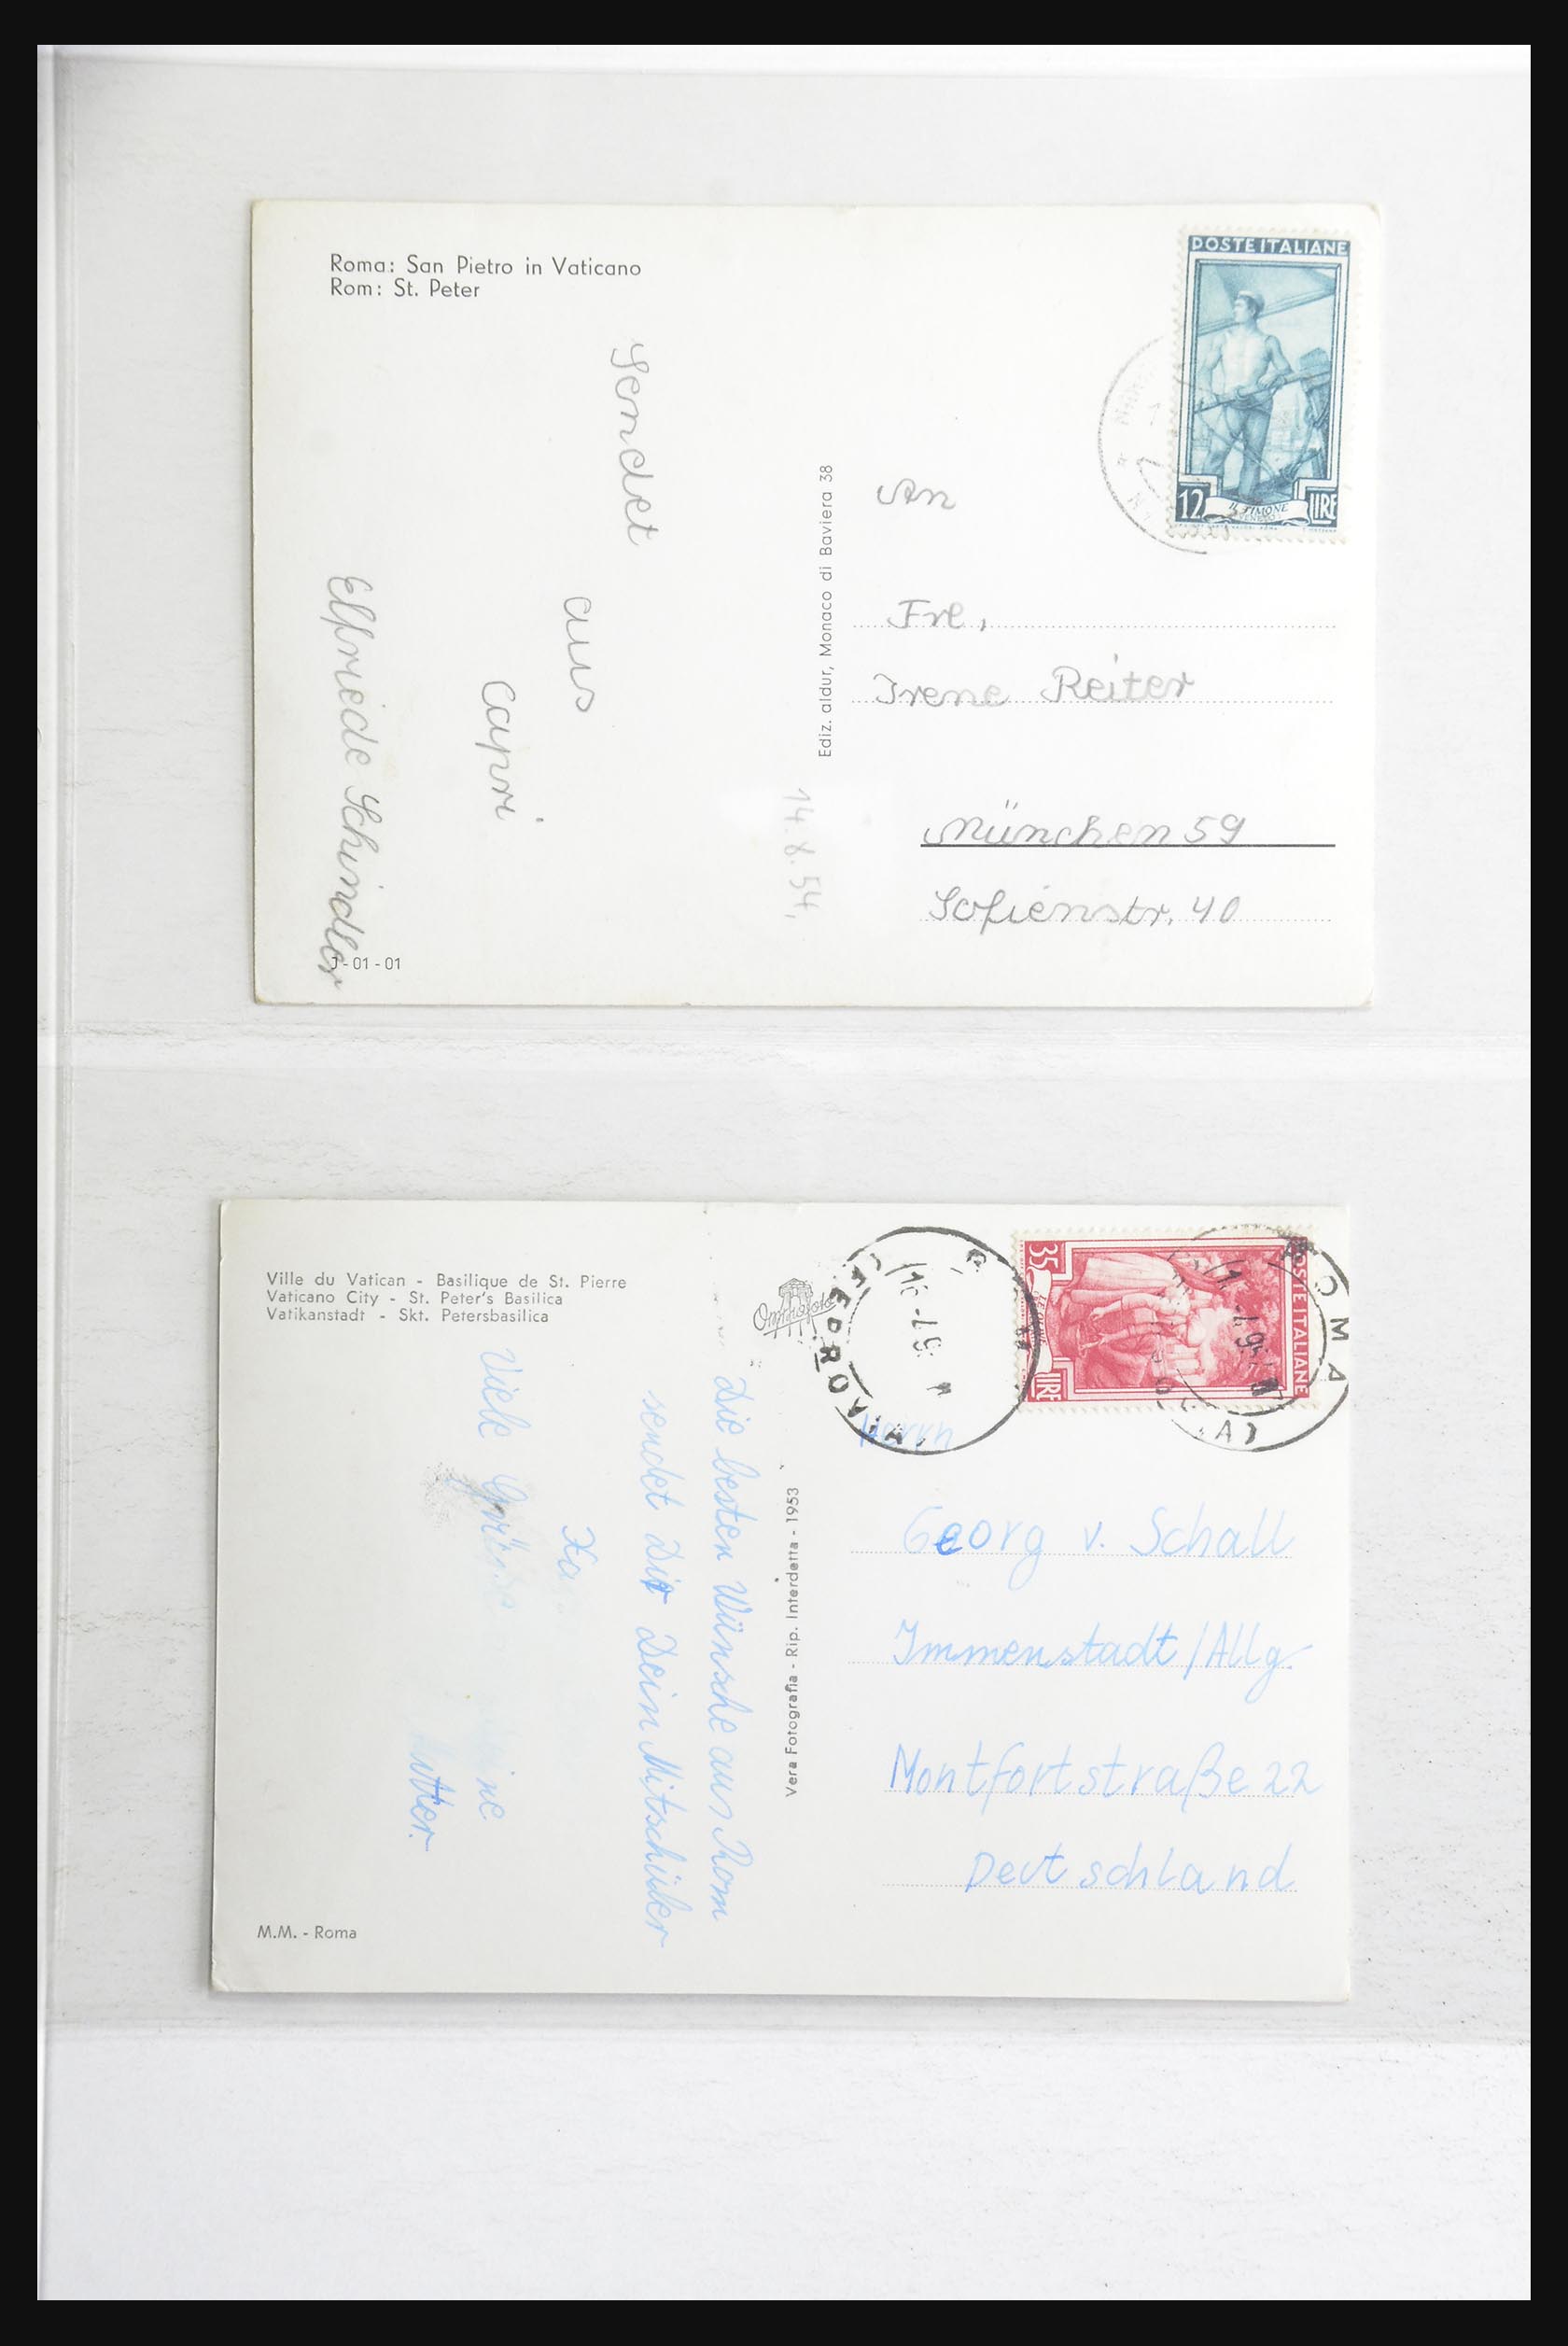 Roma: San Pietro in Vaticano
Rom: St. Peter
Sendet
aus
Capri
Elfriede Schindler
14.8.54.
J-01-01
Ediz. aldur, Monaco di Baviera 38
POSTE ITALIANE
12 LIRE
IL TIMONE
An
Frl,
Irene Reiter
München 59
Sofienstr. 40
Ville du Vatican - Basilique de St. Pierre
Vaticano City - St. Peter's Basilica
Vatikanstadt - Skt. Petersbasilica
Die besten Wünsche aus Rom
sendet Dir Dein Mitschüler
Viele Grüsse
M.M. - Roma
Omniafoto
Vera Fotografia - Rip. Interdetta - 1953
35 LIRE
POSTE ITALIANE
ROMA
Herrn
Georg v. Schall
Immenstadt/Allg.
Montfortstraße 22
Deutschland